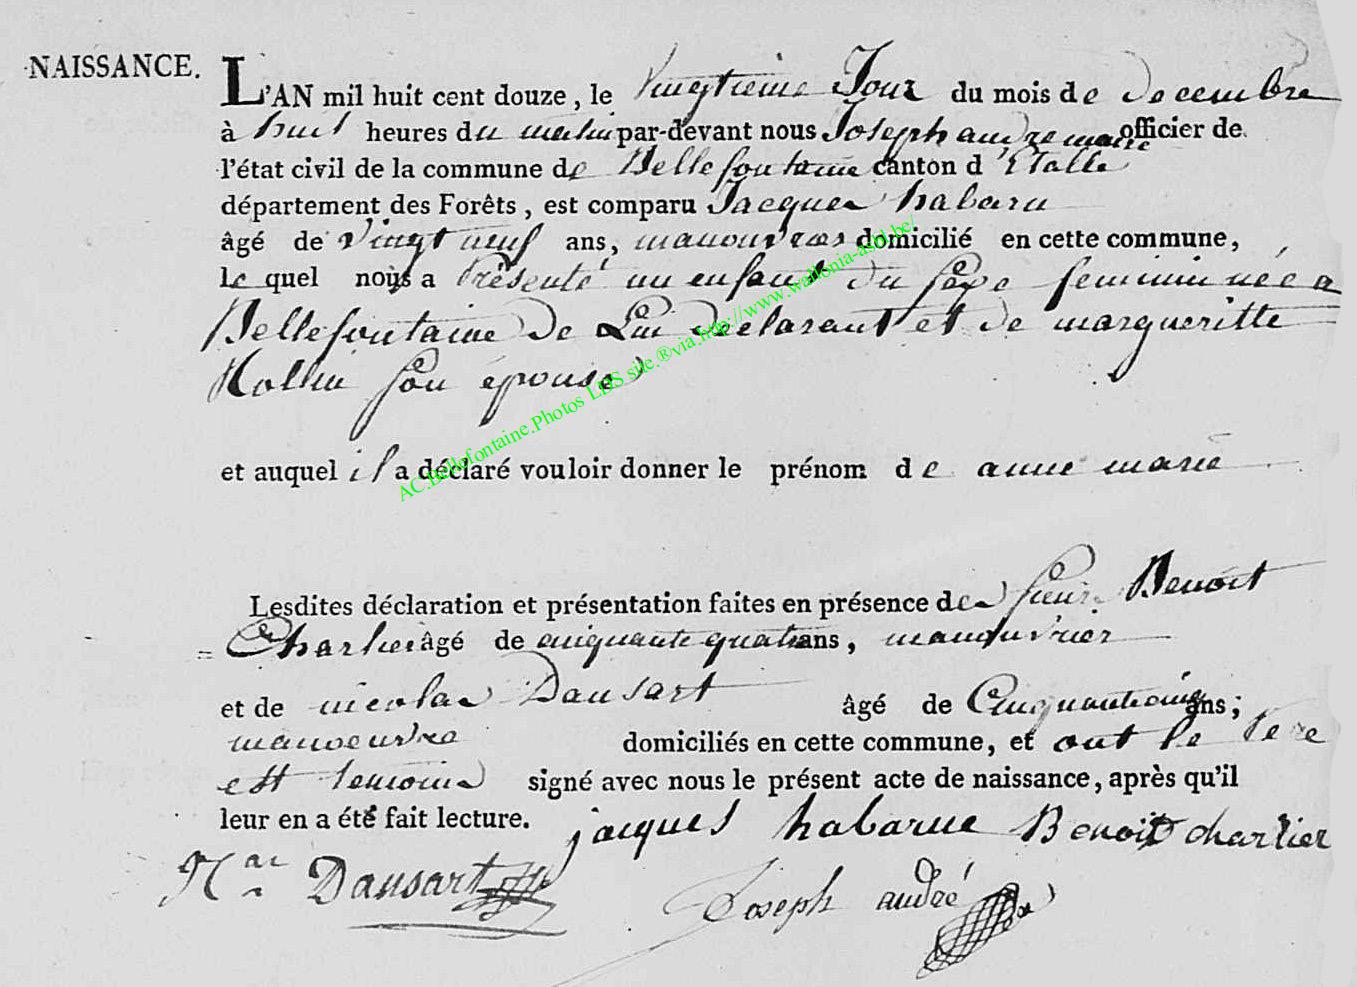 NAISSANCE.
L'AN mil huit cent douze, le Vingtieme Jour du mois de Decembre
à huit heures du matin par-devant nous Joseph andre maire officier de
l'état civil de la commune de Bellefontaine canton d'Etalle
département des Forêts, est comparu Jacques habaru
âgé de vingt neuf ans, manouvres domicilié en cette commune,
le quel nous a Présenté un enfant du sexe feminin née a
Bellefontaine de Lui declarant et de margueritte
Hollin son épouse
et auquel il a déclaré vouloir donner le prénom de anne marie
Lesdites déclaration et présentation faites en présence de sieur Benoit
Charlier âgé de cinquante quatre ans, manouvrier
et de nicolas Dausart âgé de Cinquante cinq ans;
manoeuvre domiciliés en cette commune, et ont le Pere
est temoins signé avec nous le présent acte de naissance, après qu'il
leur en a été fait lecture. jacques habarue Benoit charlier
Nar Dausart Joseph andré
AC.Bellefontaine.Photos LDS site.®via.http://www.wallonia-asbl.be/